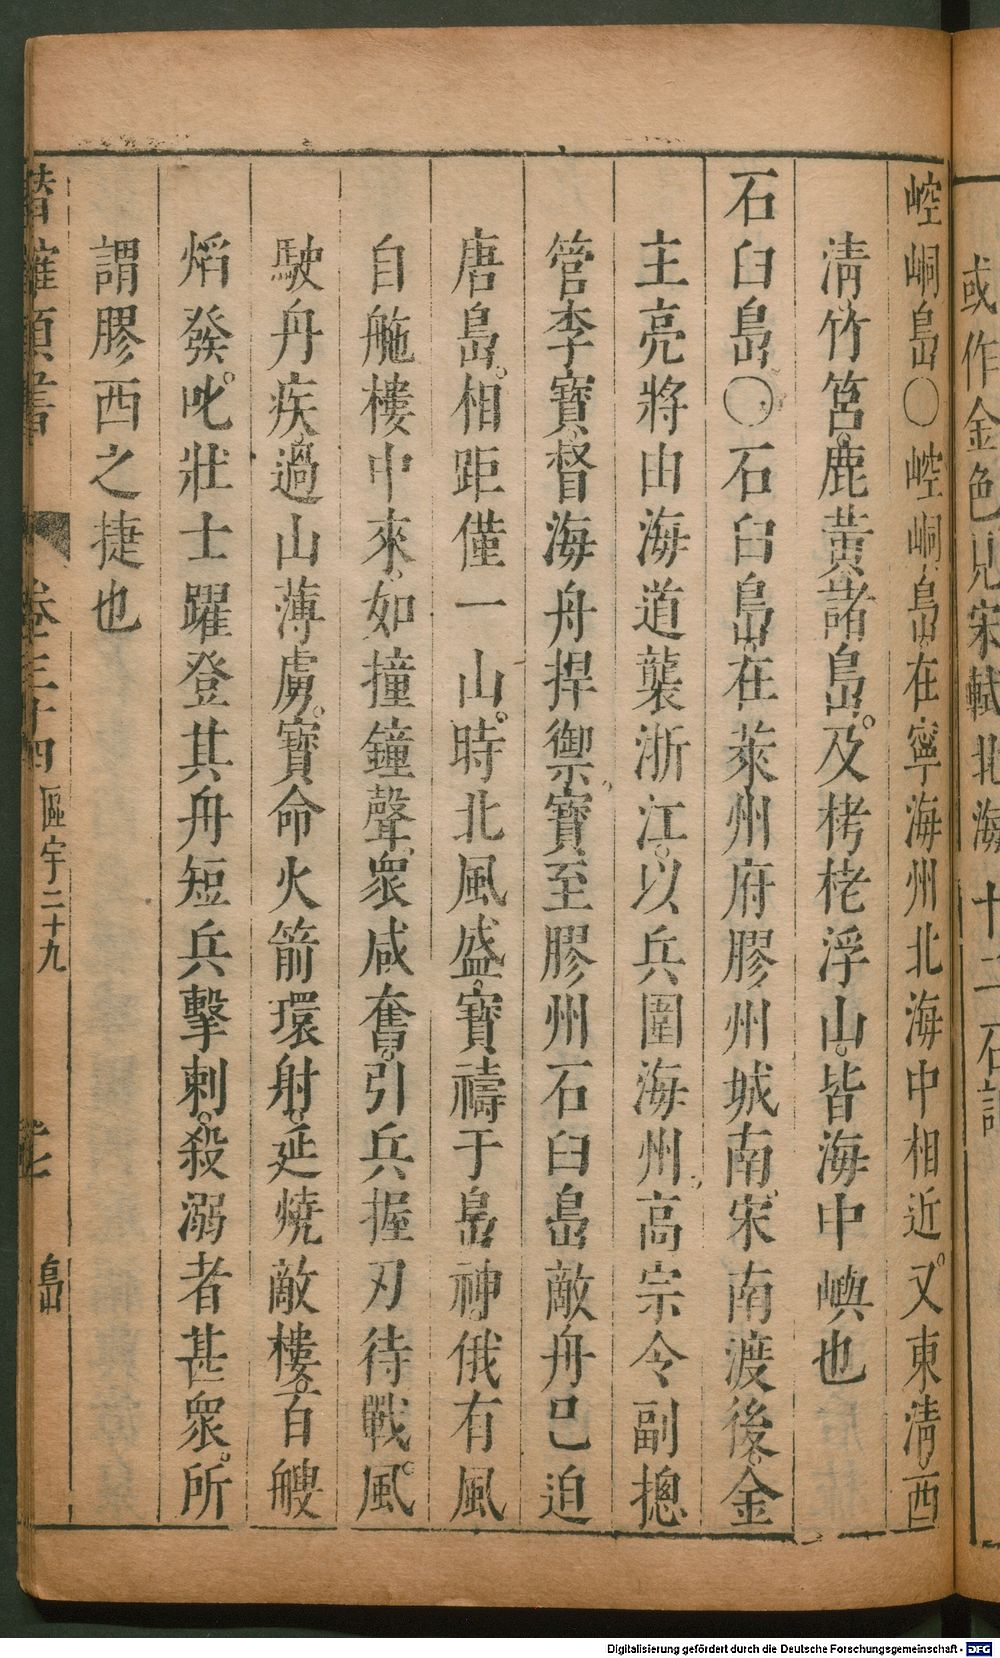 或作金色見宋軾北海十二石記
崆峒島〇崆峒島在寧海州北海中相近又東清酉
清竹筥鹿黃諸島及栲栳浮山皆海中嶼也
石臼島〇石臼島在萊州府膠州城南宋南渡後金
主亮將由海道襲浙江以兵圍海州高宗令副摠
管李寶督海舟捍禦寶至膠州石臼島敵舟已迫
唐島相距僅一山時北風盛寶禱于島神俄有風
自舵樓中來如撞鐘聲衆咸奮引兵握刃待戰風
駛舟疾過山薄虜寶命火箭環射延燒敵樓百艘
熖發叱壯士躍登其舟短兵擊刺殺溺者甚衆所
謂膠西之捷也
潛確類書 卷三十四 區宇二十九 島
Digitalisierung gefördert durch die Deutsche Forschungsgemeinschaft - DFG